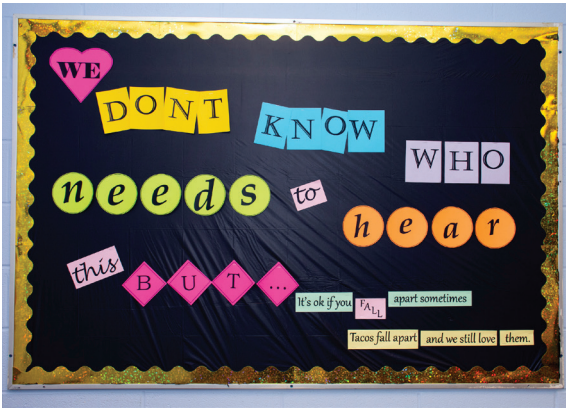 WE
DONT KNOW WHO
needs to hear
this BUT...
It's ok if you FALL apart sometimes
Tacos fall apart and we still love them.